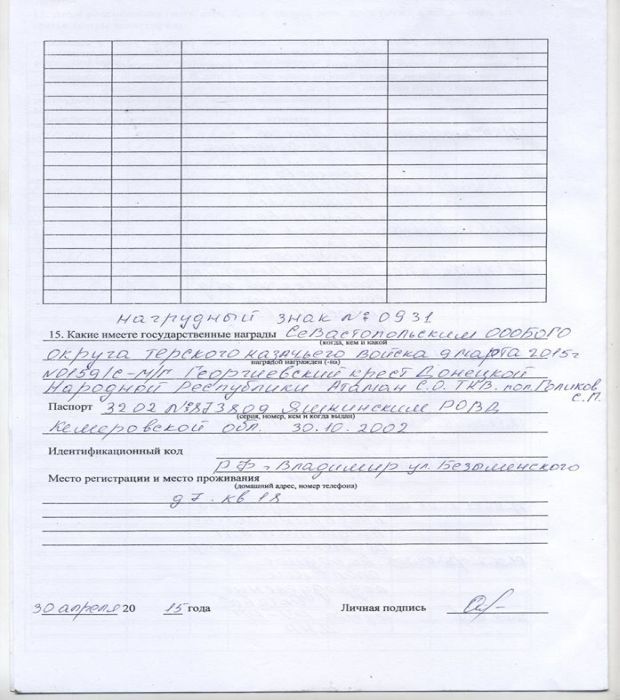 нагрудный знак № 0931
15. Какие имеете государственные награды Севастопольским ОООБОГО
(когда, кем и какой
округа терского казачьего войска 9 марта 2015г
наградой награжден (-на)
№0159/С-М/Г Георгиевский крест Донецкой
Народной Республики Атаман С.О. ТКВ. пол. Голиков
С.П.
Паспорт 3202 № 873809 Яшкинским РОВД
(серия, номер, кем и когда выдан)
Кемеровской обл. 30.10.2002
Идентификационный код
РФ-Владимир ул. Безыменского
Место регистрации и место проживания
(домашний адрес, номер телефона)
д 7. кв 18
30 апреля 20 15 года Личная подпись